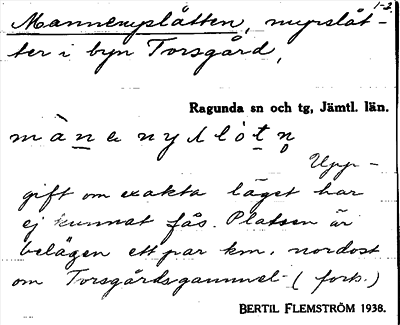 1-2
Mannenyslåtten, myrslåt-
ter i byn Torsgård,
Ragunda sn och tg, Jämtl. län.
Upp-
gift om exakta läget har
ej kunnat fås. Platsen är
belägen ett par km. nordost
om Torsgårdsgammel- (forts.)
BERTIL FLEMSTRÖM 1938.